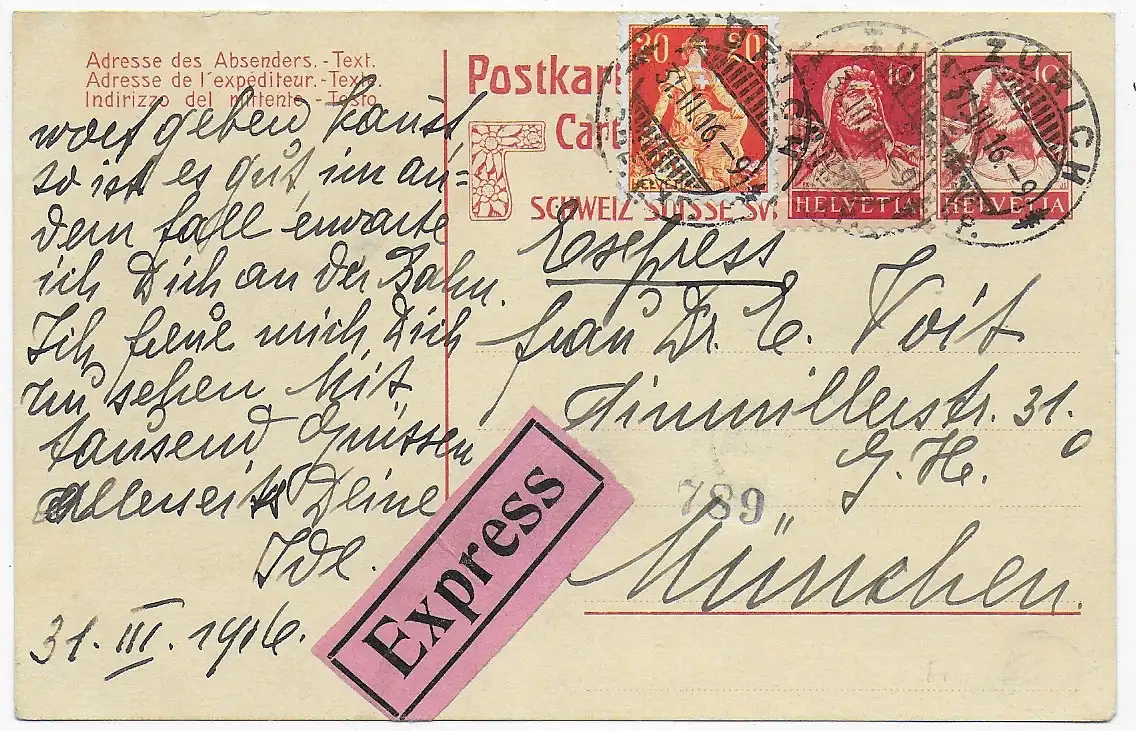 Adresse des Absenders. - Text.
Adresse de l'expéditeur. - Texte.
Indirizzo del mittente. - Testo.
wort geben kannst
so ist es gut, im an=
dern fall erwarte
ich Dich an der Bahn.
Ich freue mich Dich
zu sehen Mit
tausend Grüssen
allerseits Deine
Idl.
31. III. 1916.
Postkar
Cart
SCHWEIZ SUISSE SV
30 30
HELVE
10
HELVETIA
10
HELVETIA
ZÜRICH
31.III.16.-9
ZÜRICH
31.III.16.-9
Express
Frau Dr. E. Voit
Ainmillerstr. 31.
G. H.
München.
789
Express